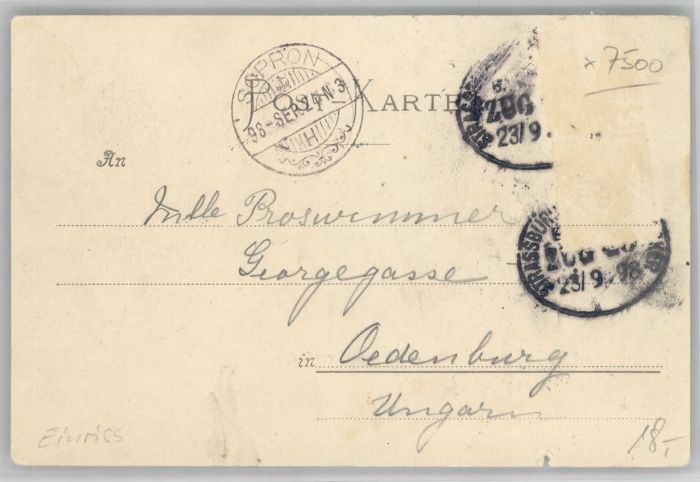 SOPRON
98-SEP.24-N3
H
POST-KARTE
STRASSBURG
ZUG
23/9
x 7500
An
Mlle Proswimmer
Georgegasse
STRASSBURG
ZUG
23/9 98
in Oedenburg
Ungarn
Einriss
18,-